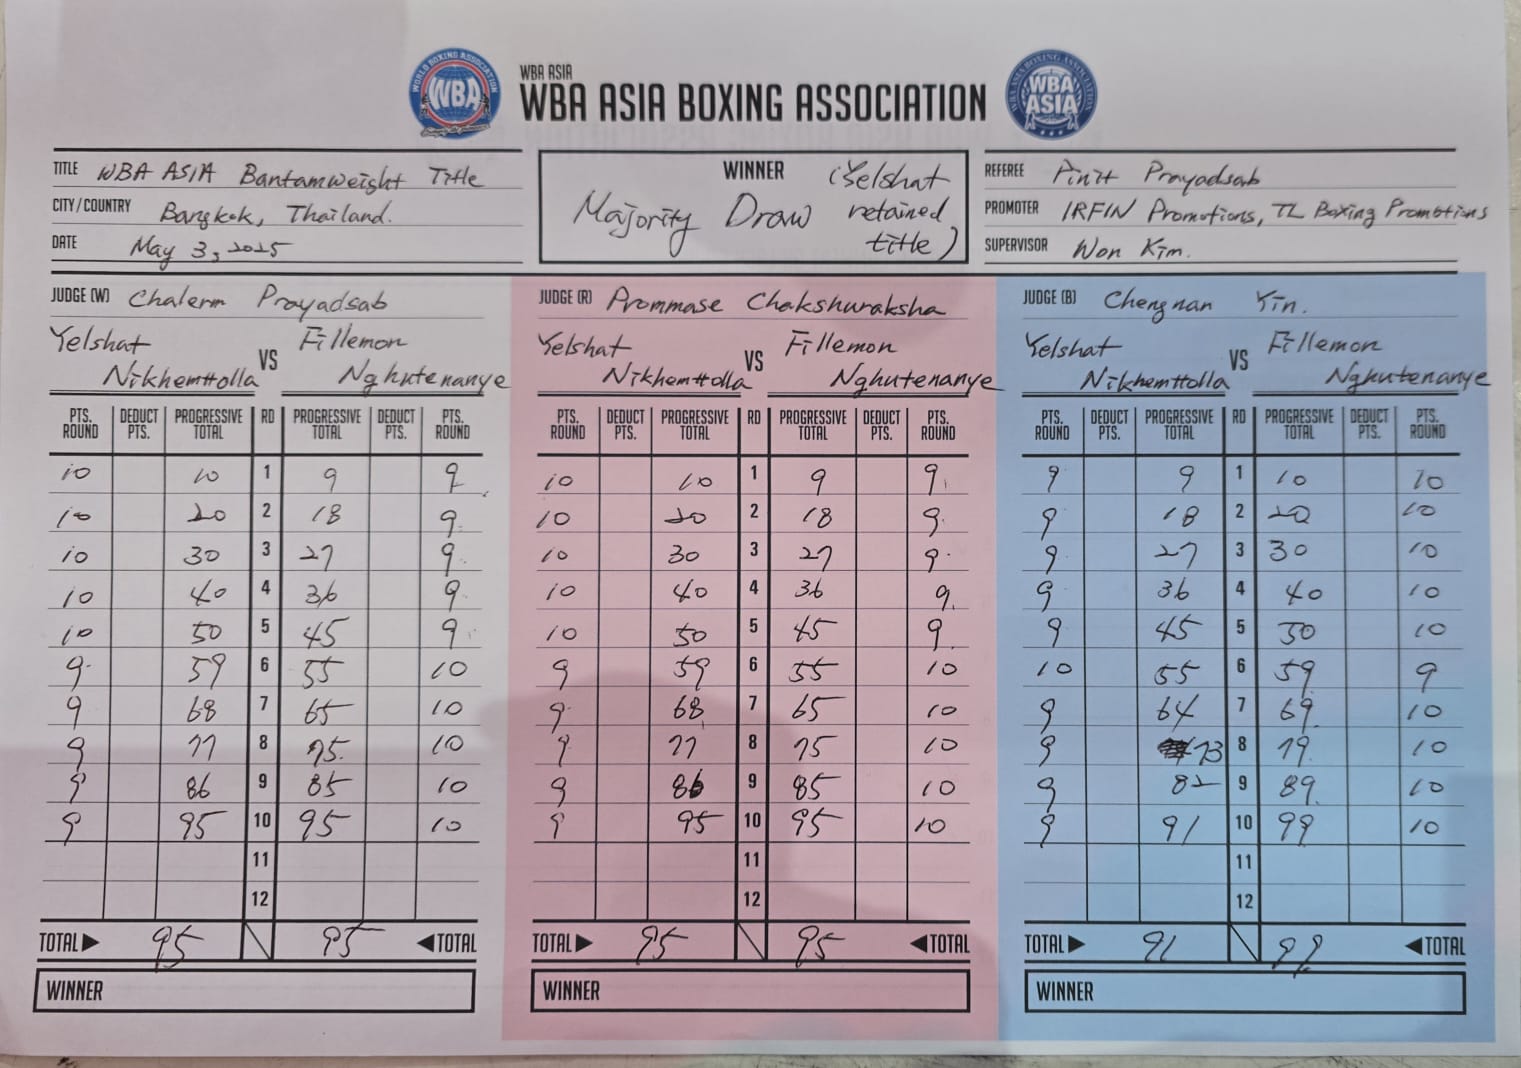 WORLD BOXING ASSOCIATION
WBA
WBA ASIA
WBA ASIA BOXING ASSOCIATION
WBA ASIA BOXING ASSOCIATION
WBA ASIA
TITLE WBA ASIA Bantamweight Title
CITY / COUNTRY Bangkok, Thailand.
DATE May 3, 2025
WINNER (Yelshat
Majority Draw retained
title)
REFEREE Pinit Prayadsab
PROMOTER IRFIN Promotions, TL Boxing Promotions
SUPERVISOR Won Kim.
JUDGE (W) Chalerm Prayadsab
Yelshat VS Fillemon
Nikhemttolla Nghutenanye
PTS. ROUND DEDUCT PTS. PROGRESSIVE TOTAL RD PROGRESSIVE TOTAL DEDUCT PTS. PTS. ROUND
10 10 1 9 9
10 20 2 18 9
10 30 3 27 9
10 40 4 36 9
10 50 5 45 9
9 59 6 55 10
9 68 7 65 10
9 77 8 75 10
9 86 9 85 10
9 95 10 95 10
11
12
TOTAL 95 95 TOTAL
WINNER
JUDGE (R) Prommase Chakshuraksha
Yelshat VS Fillemon
Nikhemttolla Nghutenanye
PTS. ROUND DEDUCT PTS. PROGRESSIVE TOTAL RD PROGRESSIVE TOTAL DEDUCT PTS. PTS. ROUND
10 10 1 9 9
10 20 2 18 9
10 30 3 27 9
10 40 4 36 9
10 50 5 45 9
9 59 6 55 10
9 68 7 65 10
9 77 8 75 10
9 86 9 85 10
9 95 10 95 10
11
12
TOTAL 95 95 TOTAL
WINNER
JUDGE (B) Chengnan Yin.
Yelshat VS Fillemon
Nikhemttolla Nghutenanye
PTS. ROUND DEDUCT PTS. PROGRESSIVE TOTAL RD PROGRESSIVE TOTAL DEDUCT PTS. PTS. ROUND
9 9 1 10 10
9 18 2 20 10
9 27 3 30 10
9 36 4 40 10
9 45 5 50 10
10 55 6 59 9
9 64 7 69 10
9 73 8 79 10
9 82 9 89 10
9 91 10 99 10
11
12
TOTAL 91 99 TOTAL
WINNER